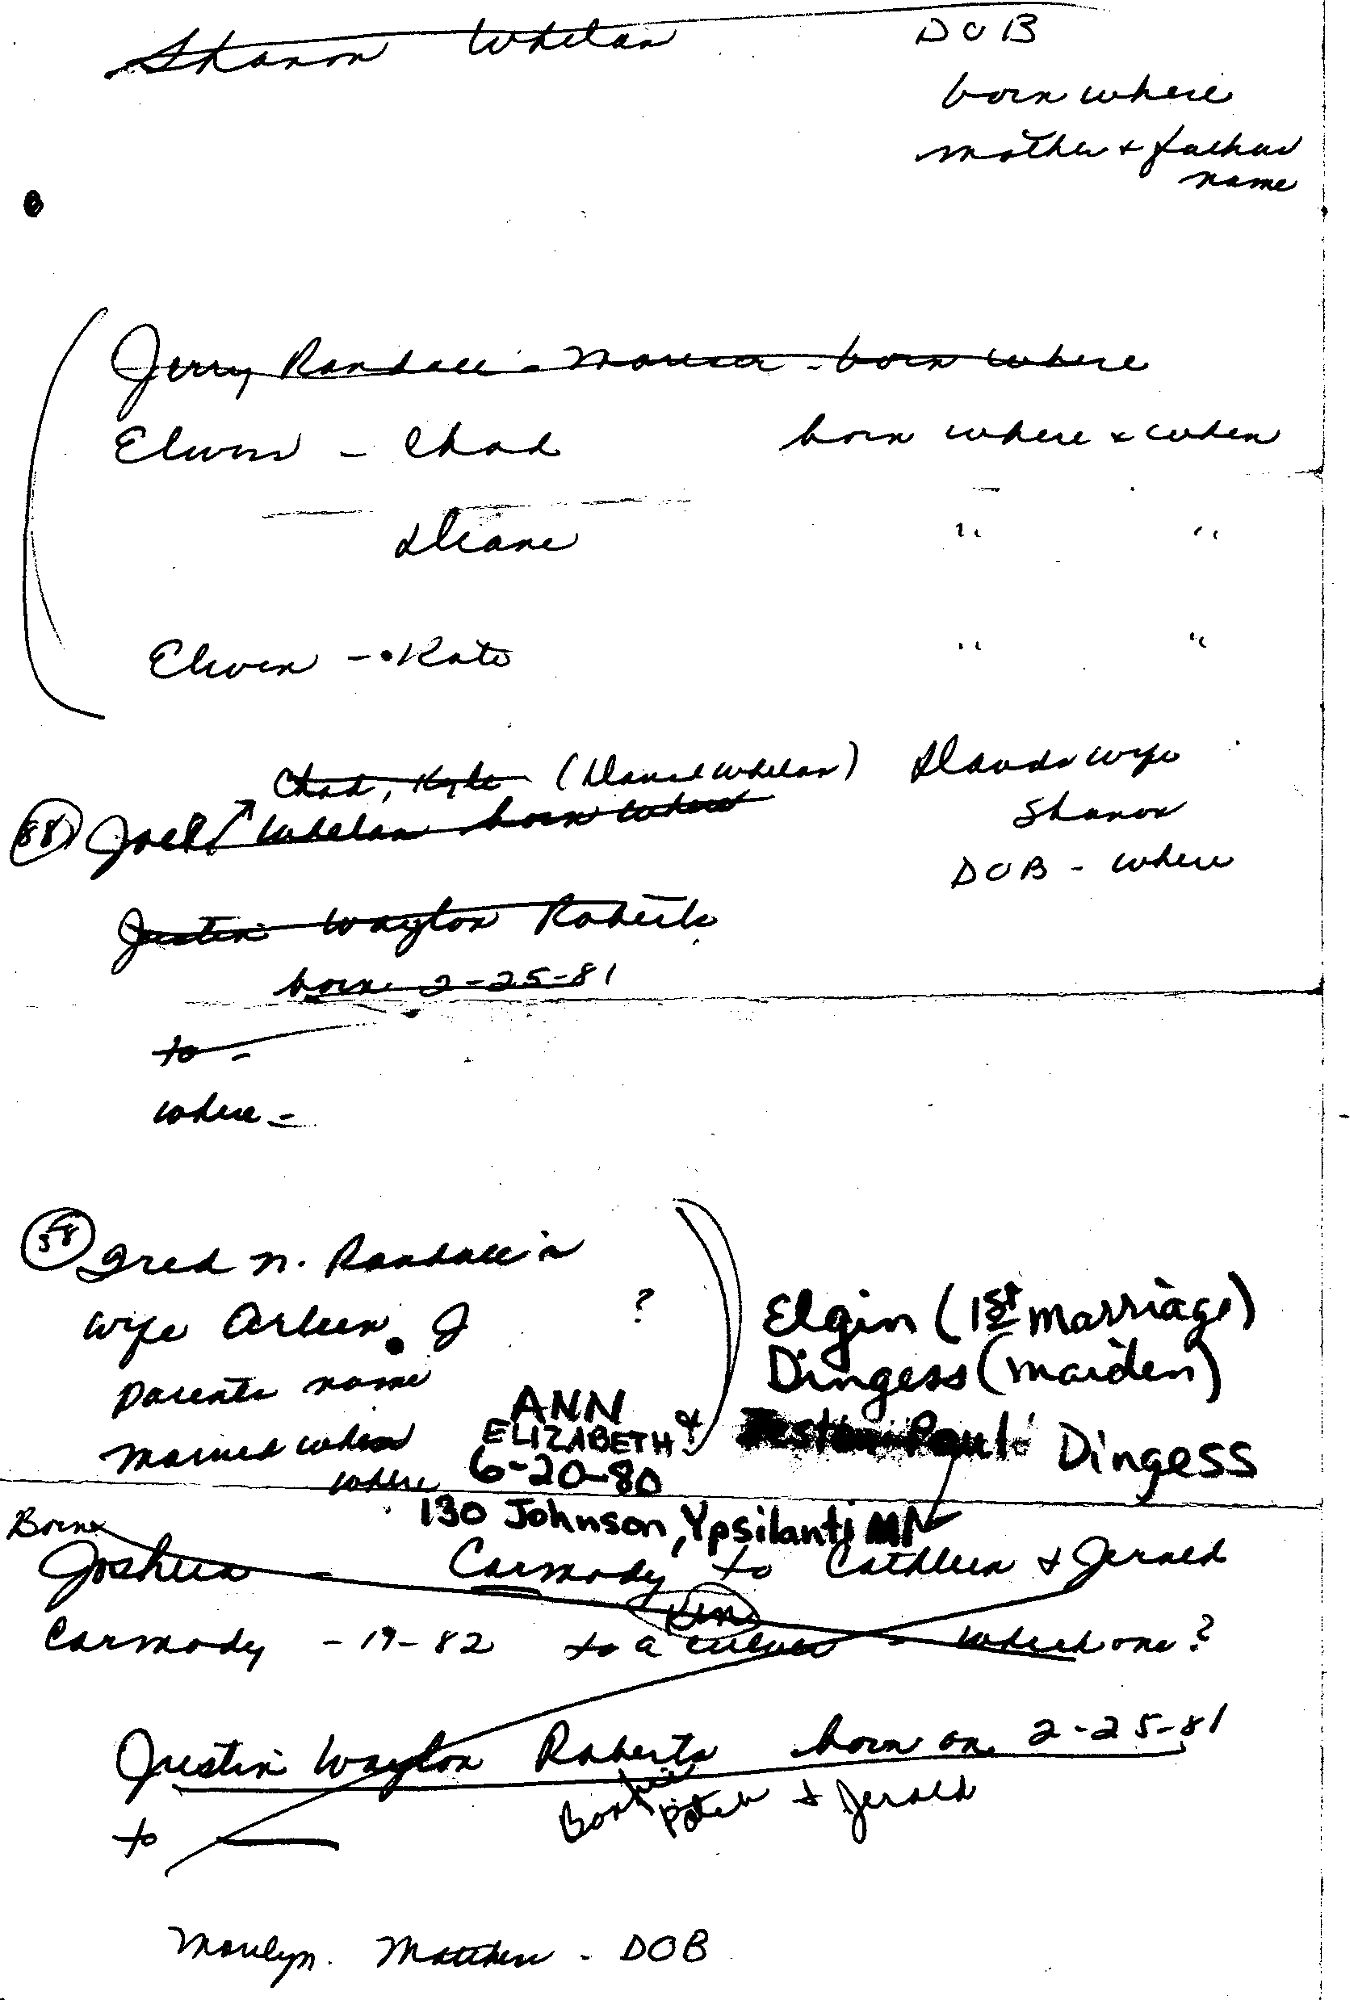 Shanon Whelan DOB
born where
mother + father
name
Jerry Randall - - born where
Elwin - Chad born where & when
Diane " "
Elwin - Kate " "
Chad, Kyle (David Whelan) Davids wife
88 Joel Whelan born where Shanon
DOB - where
Justin Waylon Roberts
born 2-25-81
to -
where -
58 Fred N. Randall's
wife Arleen J ? Elgin (1st marriage)
parents name Dingess (maiden)
married when ANN ELIZABETH & Paul Dingess
where 6-20-80
Born 130 Johnson, Ypsilanti
Joshua - Carmody to Cathleen & Jerald
Carmody - 19-82 to a Culver - which one?
Justin Waylon Roberts born on 2-25-81
to Bonnie & Jerald
Marilyn - DOB